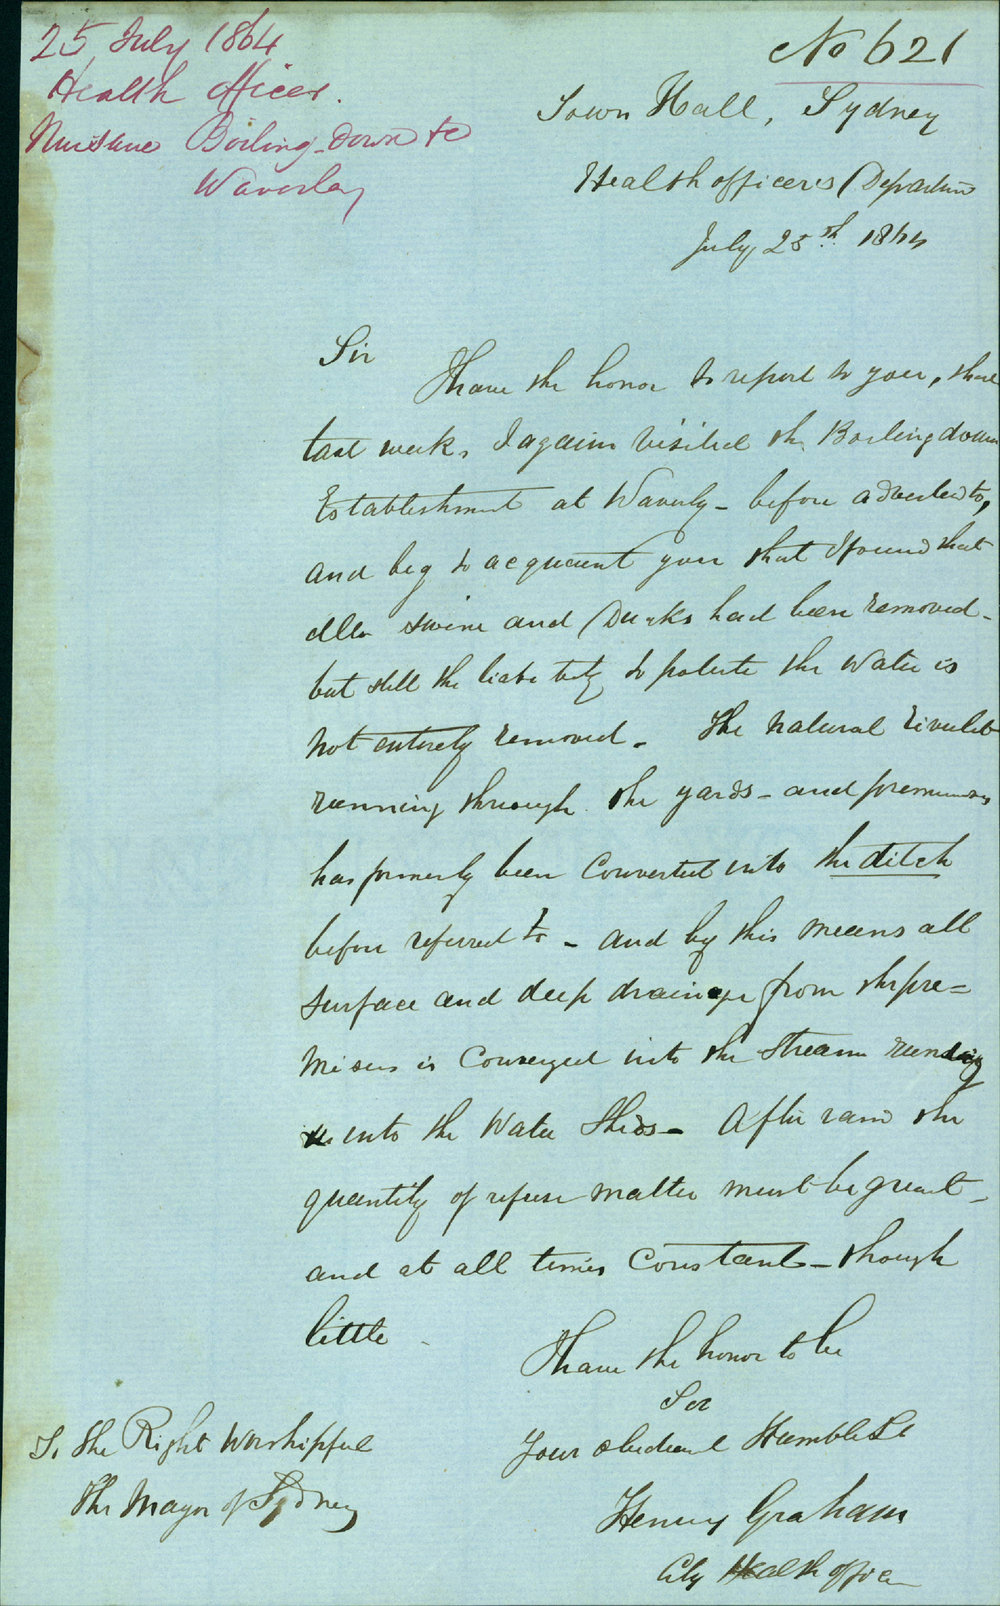 25 July 1864
Health officer.
Nuisance Boiling-Down &c
Waverley
No 621
Town Hall, Sydney
Health officer's Department
July 25th. 1864
Sir
I have the honor to report to you, that
last week, I again visited the Boiling down
Establishment at Waverly - before adverted to,
and beg to acquaint you that I found that
all swine and Ducks had been removed -
but still the liability to polute the Water is
not entirely removed - The natural rivulet
running through the yards - and premises
has formerly been Converted into the ditch
before referred to - and by this means all
surface and deep drainage from the pre=
mises is Conveyed into the stream running
into the Water Sheds - After rain the
quantity of refuse matter must be great -
and at all times Constant - though
little -
I have the honor to be
Sir
Your obedient Humble St
Henry Graham
City Health officer
To the Right Worshipful
The Mayor of Sydney